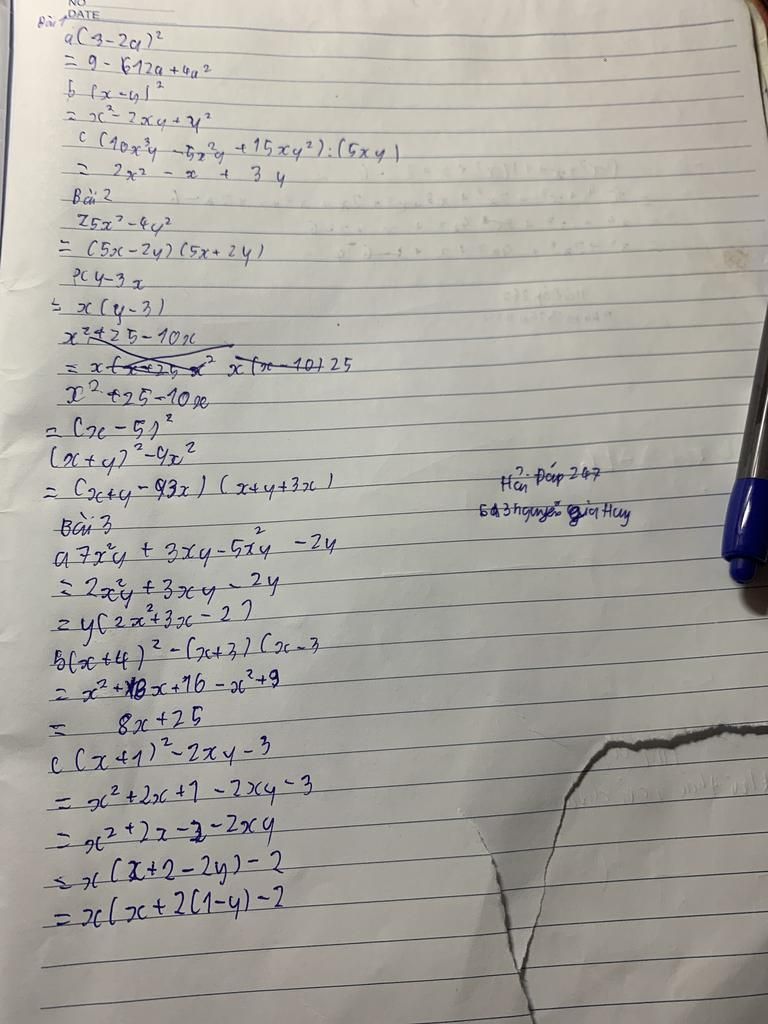 NO
DATE
Bài 1
a (3-2a)²
= 9 - 12a + 4a²
b (x-y)²
= x² - 2xy + y²
c (10x³y - 5x²y + 15xy²) : (5xy)
= 2x² - x + 3y
Bài 2
25x² - 4y²
= (5x - 2y) (5x + 2y)
xy - 3x
= x (y - 3)
x² + 25 - 10x
x (x - 10) + 25
x² + 25 - 10x
= (x - 5)²
(x+y)² - 9x²
= (x+y - 3x) (x+y+3x)
Hỏi Đáp 247
5A3 nguyễn gia Huy
Bài 3
a 7x²y + 3xy - 5x²y - 2y
= 2x²y + 3xy - 2y
= y(2x² + 3x - 2)
b (x+4)² - (x+3) (x-3
= x² + 8x + 16 - x² + 9
= 8x + 25
c (x+1)² - 2xy - 3
= x² + 2x + 1 - 2xy - 3
= x² + 2x - 2 - 2xy
= x (x + 2 - 2y) - 2
= x (x + 2(1-y) - 2